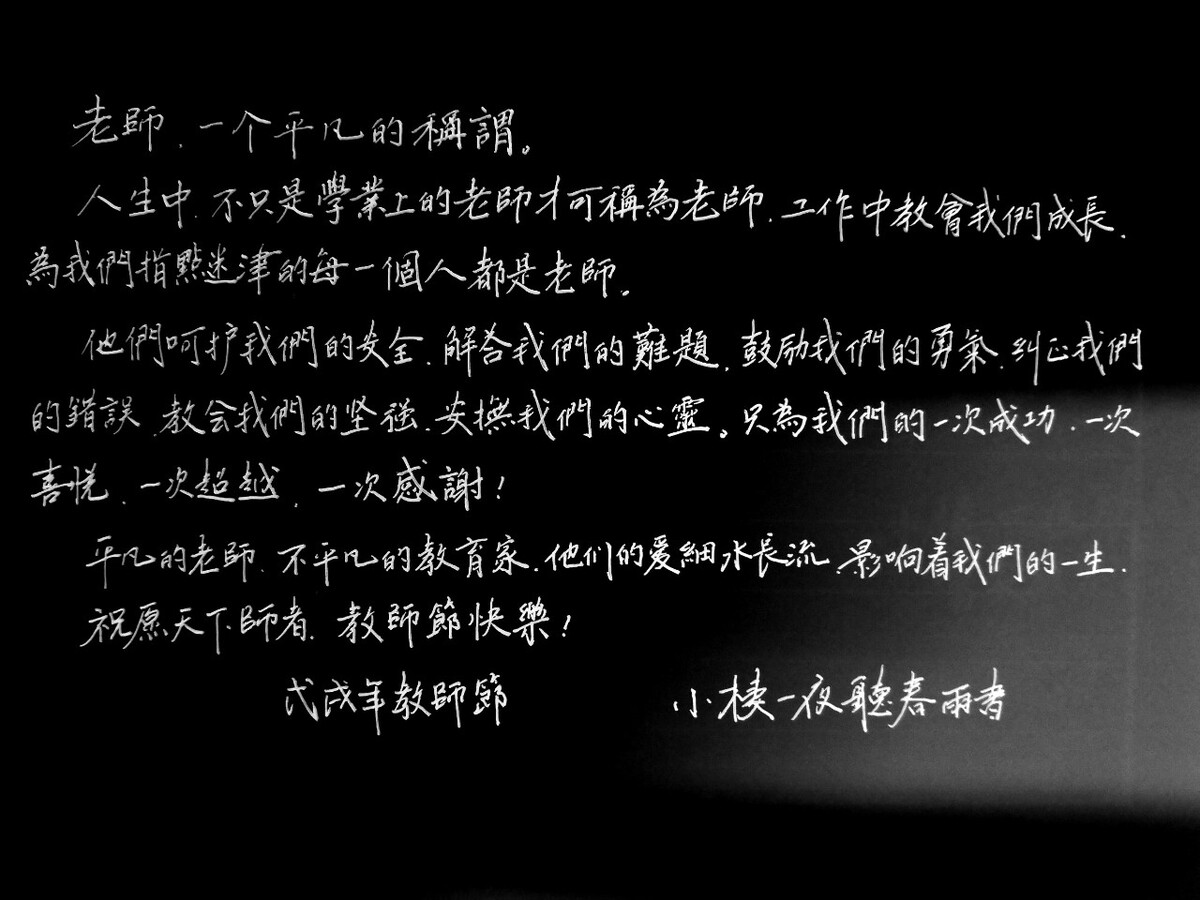 老師、一个平凡的稱謂。
人生中、不只是學業上的老師才可稱為老師、工作中教會我們成長、
為我們指點迷津的每一個人都是老師、
他們呵护我們的安全、解答我們的難題、鼓励我們的勇氣、糾正我們
的錯誤、教会我們的坚强、安撫我們的心靈。只為我們的一次成功、一次
喜悦、一次超越、一次感謝!
平凡的老師、不平凡的教育家、他们的爱細水長流、影响着我們的一生、
祝愿天下師者、教師節快樂!
戊戌年教師節 小楼一夜聽春雨書